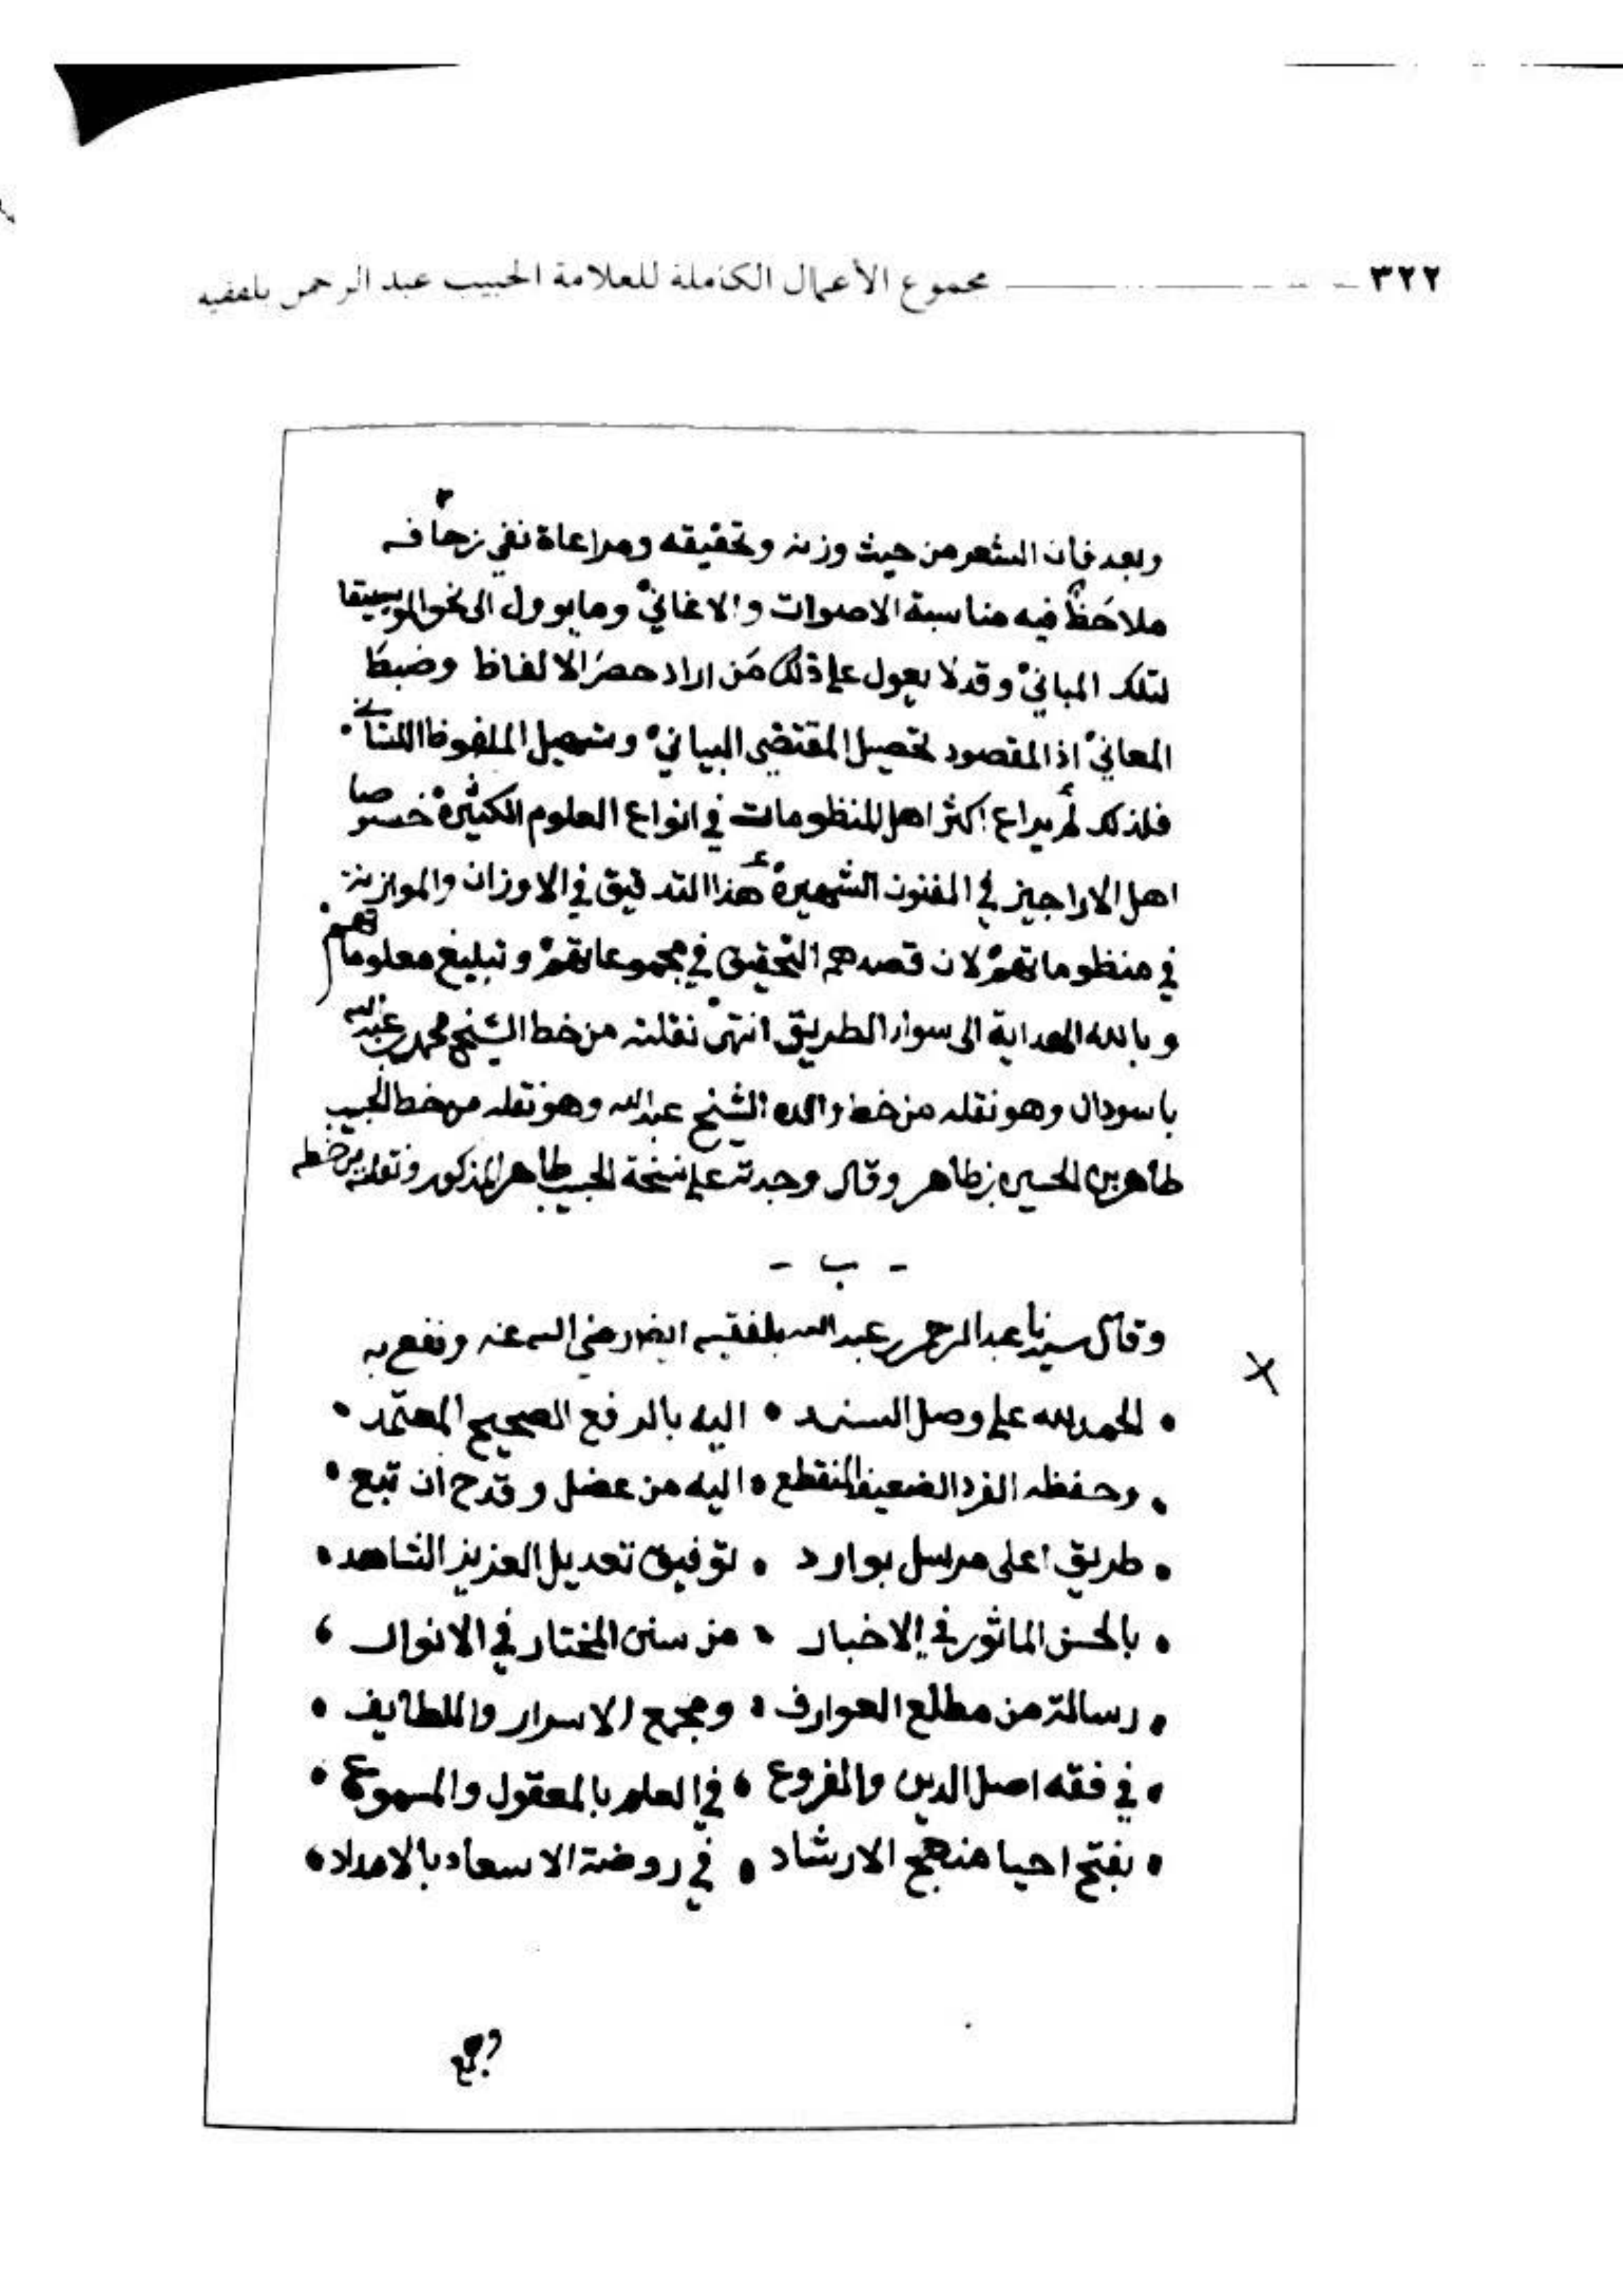 ٣٢٢ مجموع الأعمال الكاملة للعلامة الحبيب عبد الرحمن بلفقيه
وبعد فان الشعر من حيث وزنه وتحقيقه ومراعاة نفي زحافه
ملاحَظٌ فيه مناسبة الاصوات والاغانيْ وما يوول الى نحو الموسيقا
لتلك المبانيْ وقد لا يعول على ذلك مَن اراد حصرَ الالفاظ وضبطَ
المعانيْ اذ المقصود تحصيل المقتضى البيانيْ وتسهيل الملفوظ اللساني
فلذلك لم يراع اكثر اهل المنظومات في انواع العلوم الكثيرهْ خصوصا
اهل الاراجيز في الفنون الشهيرهْ هذا التدقيق في الاوزان والموازنة
في منظوماتهمْ لان قصدهم التحقيق في مجموعاتهمْ وتبليغ معلوماتهمْ
وبالله الهداية الى سواء الطريق انتهى نقلته من خط الشيخ محمد بن عبدالله
باسودان وهو نقله من خط والده الشيخ عبدالله وهو نقله من خط الحبيب
طاهر بن الحسين بن طاهر وقال وجدته على نسخة الحبيب طاهر المذكور ونقلته من خطه
- ب -
وقال سيدنا عبدالرحمن بن عبدالله بلفقيه ايضا رضي الله عنه ونفع به
• الحمد لله على وصل السند • اليه بالرفع الصحيح المعتمد •
• وحفظه الفرد الضعيف المنقطع • اليه من عضل وقدح ان تبع •
• طريق اعلى مرسل بوارد • توفيق تعديل العزيز الشاهد •
• بالحسن الماثور في الاخبار • من سنن المختار في الانوار •
• رسالة من مطلع العوارف • ومجمع الاسرار واللطايف •
• في فقه اصل الدين والفروع • في العلم بالمعقول والمسموع •
• بفتح احيا منهج الارشاد • في روضة الاسعاد بالامداد •